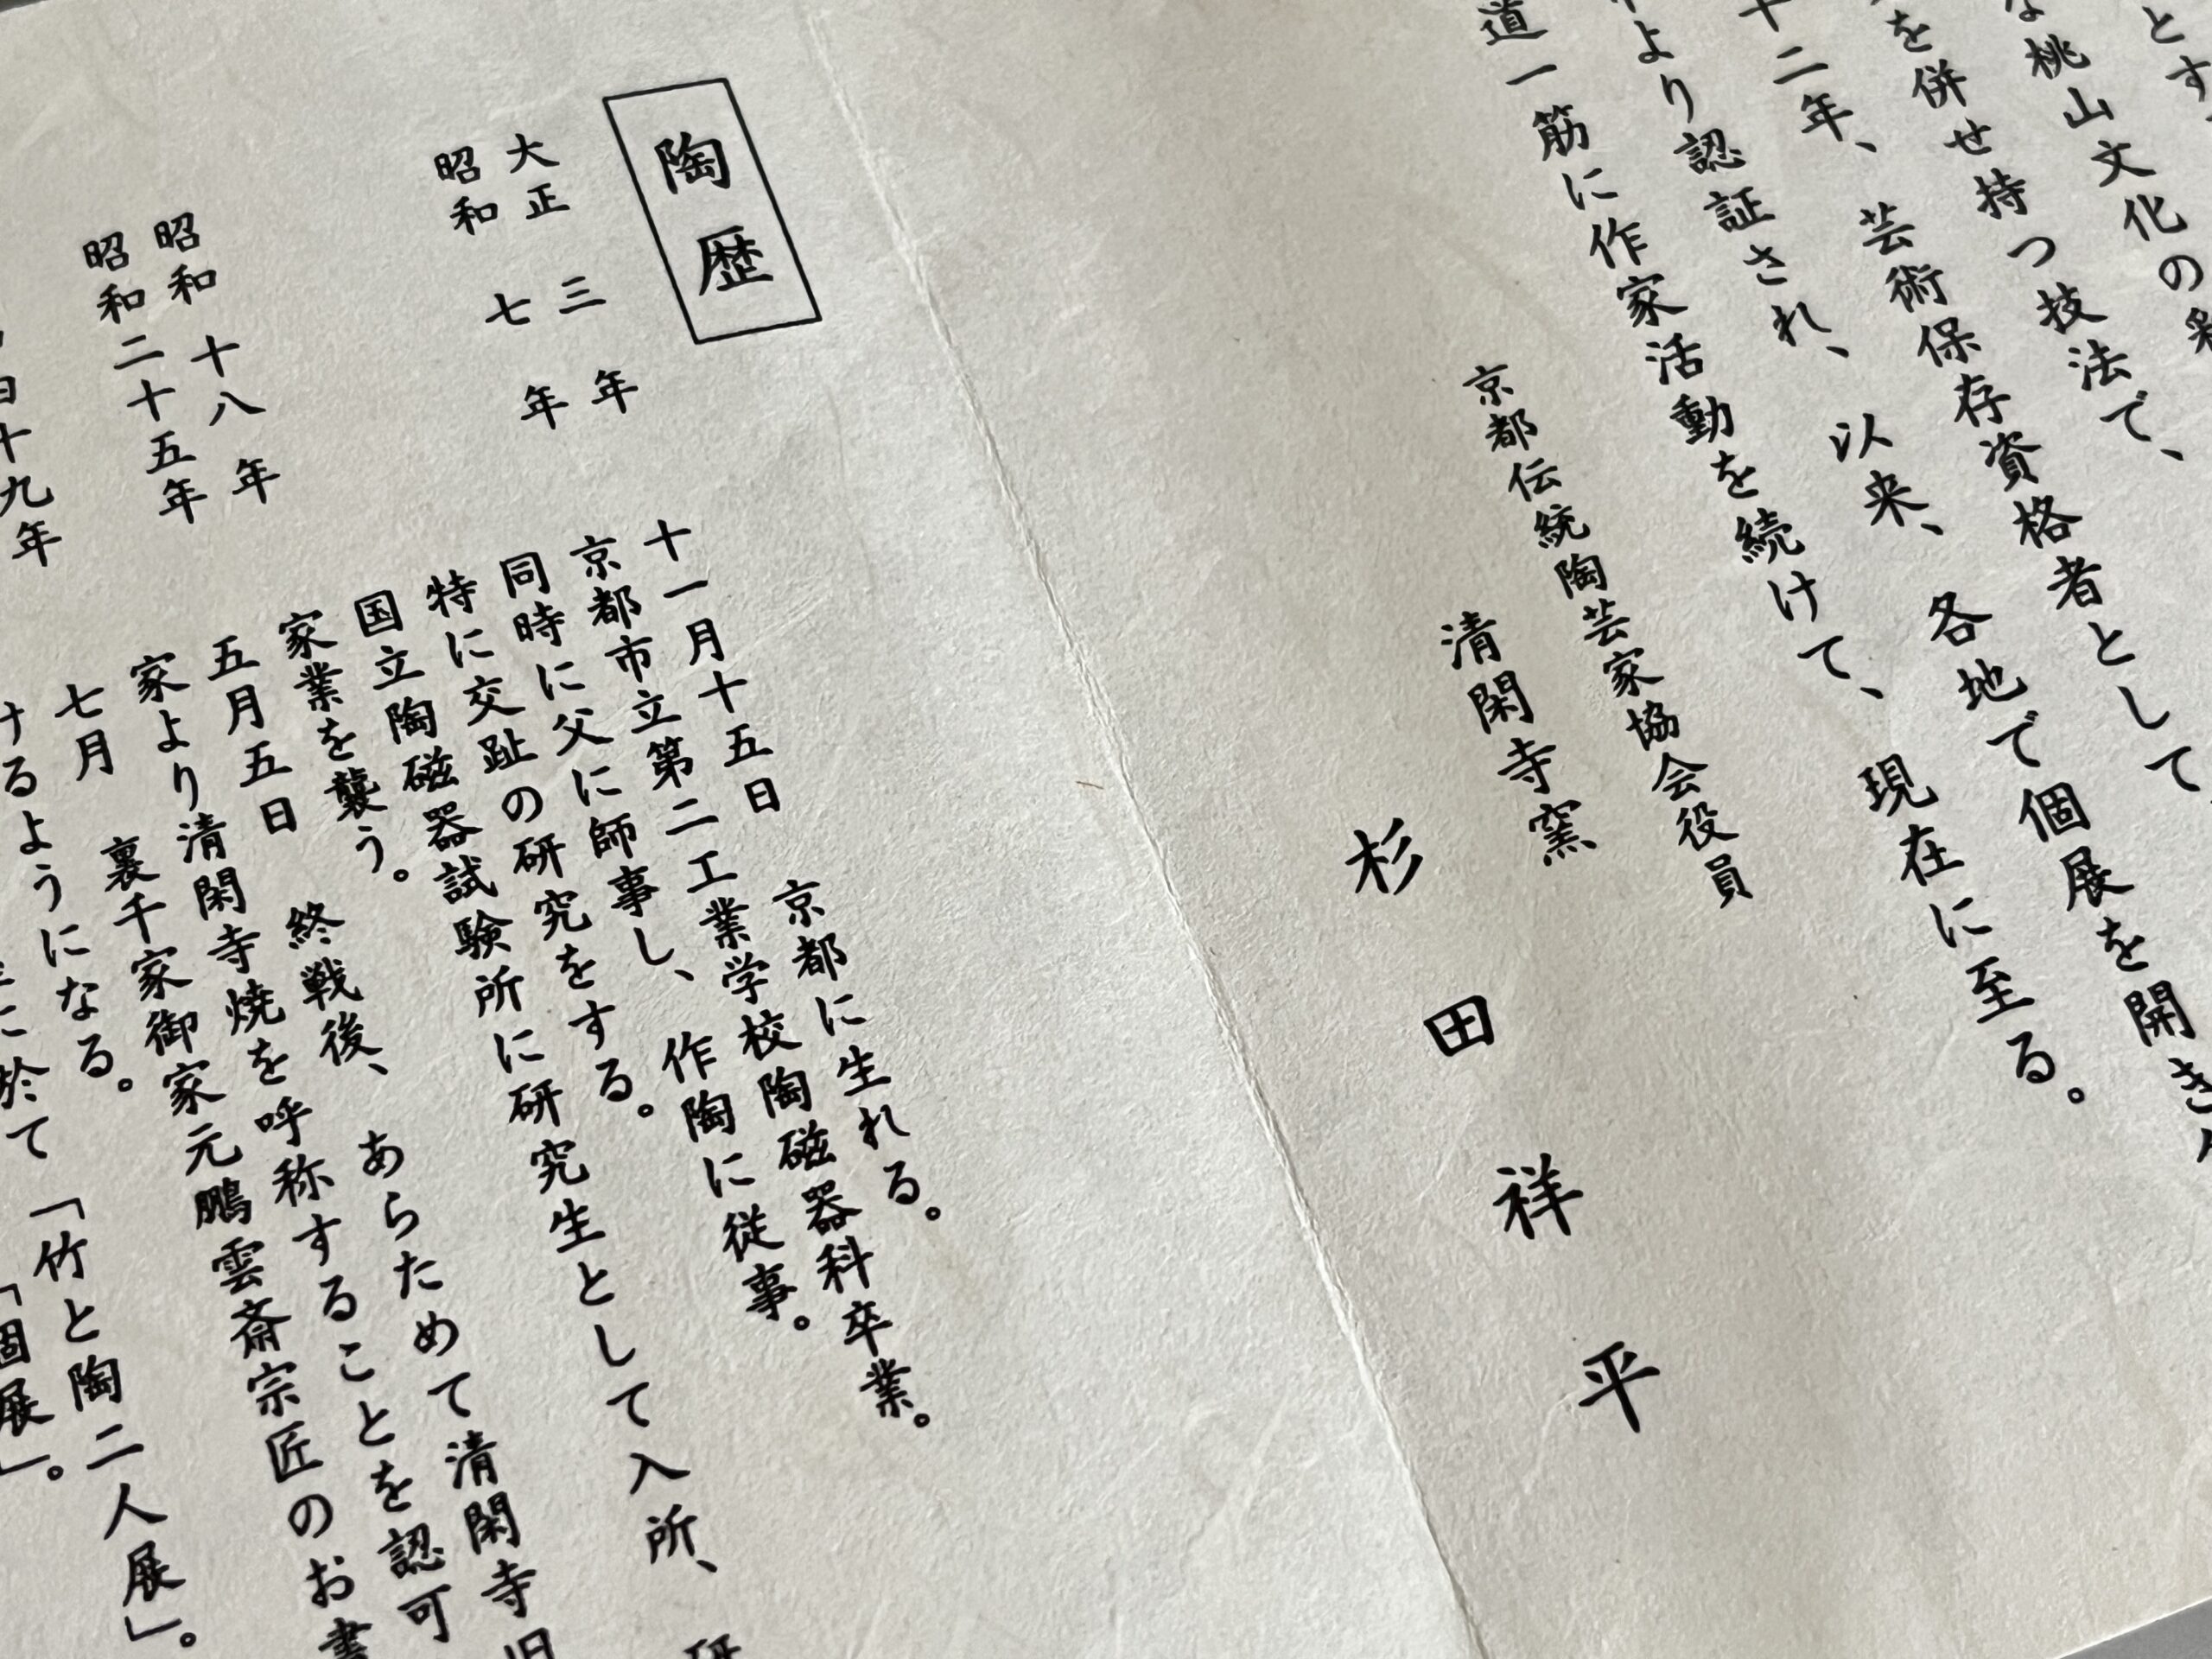 とす
な桃山文化の
を併せ持つ技法で、
十二年、芸術保存資格者として
より認証され、以来、各地で個展を開き
道一筋に作家活動を続けて、現在に至る。
京都伝統陶芸家協会役員
清閑寺窯
杉田祥平
陶歴
大正三年 十一月十五日 京都に生れる。
昭和七年 京都市立第二工業学校陶磁器科卒業。
同時に父に師事し、作陶に従事。
特に交趾の研究をする。
国立陶磁器試験所に研究生として入所、研
家業を襲う。
昭和十八年 五月五日 終戦後、あらためて清閑寺旧
家より清閑寺焼を呼称することを認可
昭和二十五年 七月 裏千家御家元鵬雲斎宗匠のお書
けるようになる。
十九年 に於て「竹と陶二人展」。
「個展」。